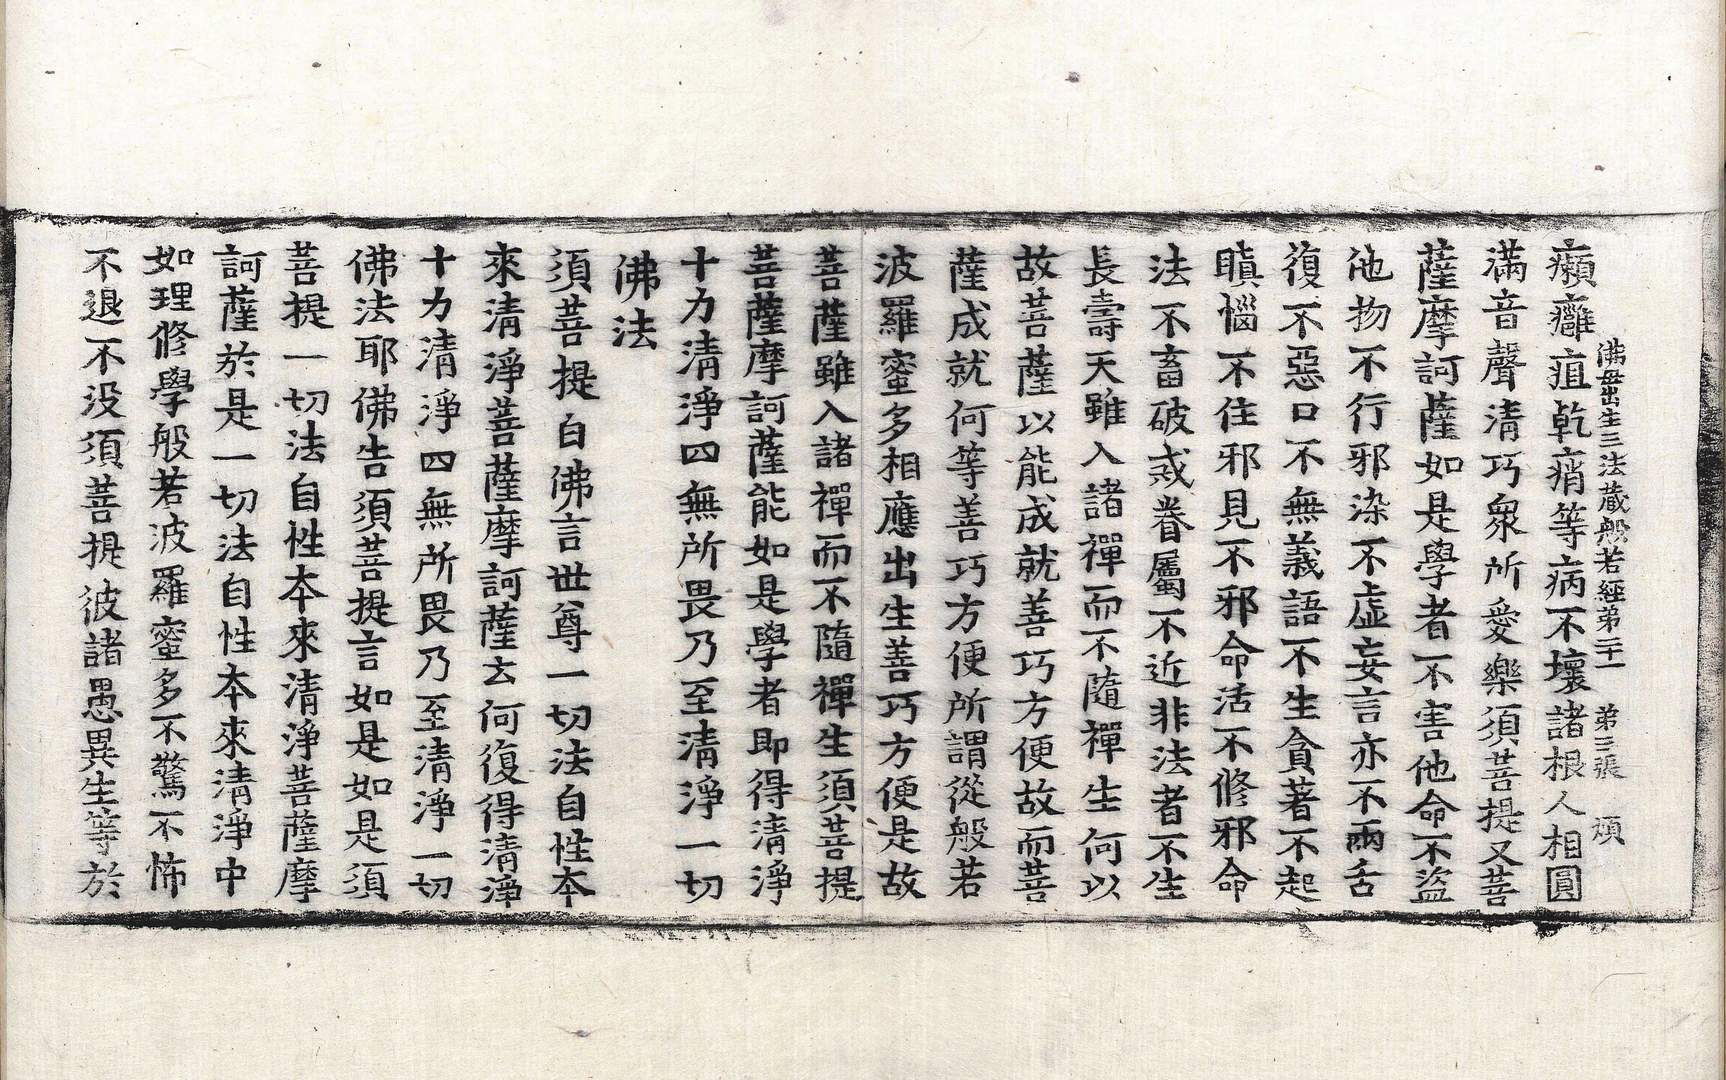 佛母出生三法藏般若經第二十一　第三張　煩
癩癰疽乾痟等病不壞諸根人相圓
滿音聲清巧衆所愛樂須菩提又菩
薩摩訶薩如是學者不害他命不盜
他物不行邪染不虛妄言亦不兩舌
復不惡口不無義語不生貪著不起
瞋惱不住邪見不邪命活不修邪命
法不畜破戒眷屬不近非法者不生
長壽天雖入諸禪而不隨禪生何以
故菩薩以能成就善巧方便故而菩
薩成就何等善巧方便所謂從般若
波羅蜜多相應出生善巧方便是故
菩薩雖入諸禪而不隨禪生須菩提
菩薩摩訶薩能如是學者即得清淨
十力清淨四無所畏乃至清淨一切
佛法
須菩提白佛言世尊一切法自性本
來清淨菩薩摩訶薩云何復得清淨
十力清淨四無所畏乃至清淨一切
佛法耶佛告須菩提言如是如是須
菩提一切法自性本來清淨菩薩摩
訶薩於是一切法自性本來清淨中
如理修學般若波羅蜜多不驚不怖
不退不没須菩提彼諸愚異生等於